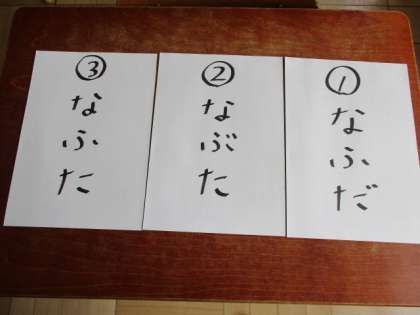 ①
なふだ
②
なぶた
③
なふた